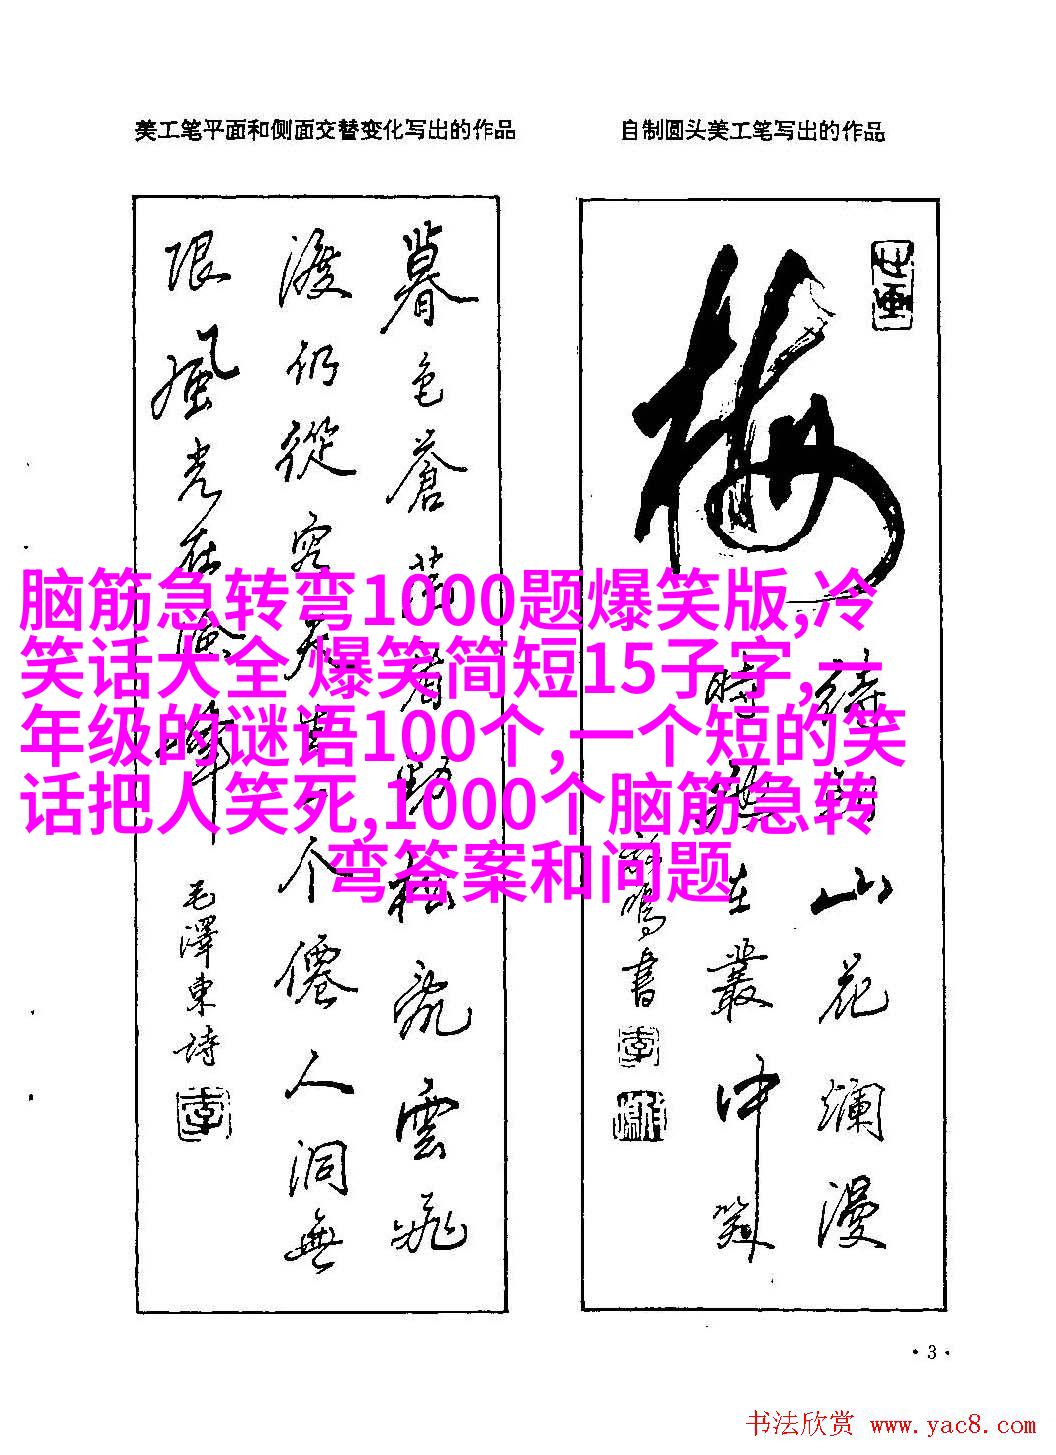 美工笔平面和侧面交替变化写出的作品
自制圆头美工笔写出的作品
暮色苍茫看劲松乱云飛
渡仍從容天生一个僊人洞無
限風光在險峰
毛澤東詩
梅
待到山花爛漫
時她在叢中笑
書
脑筋急转弯1000题爆笑版,冷
笑话大全 爆笑简短15子字,一
年级的谜语100个,一个短的笑
话把人笑死,1000个脑筋急转
弯答案和问题
·3·
书法欣赏 www.yac8.com